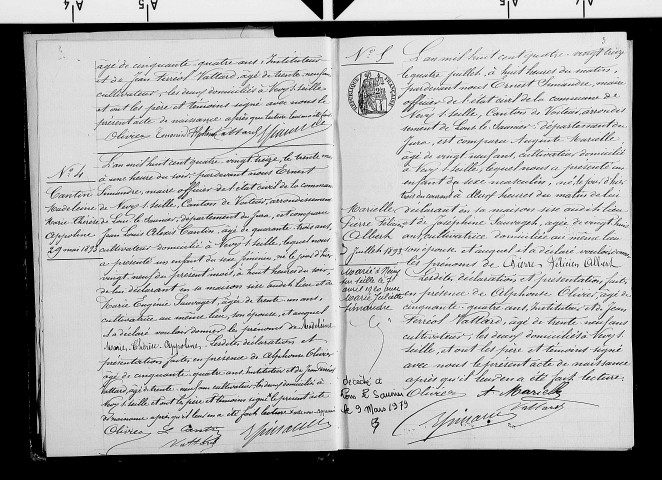 agé de cinquante quatre ans, Instituteur
et de Jean Ferréol Vattard, agé de trente neuf ans
cultivateur, les deux domiciliés à Nevy s/ Seille,
et ont les père et témoins signé avec nous le
présent acte de naissance après que lecture
Olivier Vattard
No 4
Cantin
Madeleine
Marie Thérèse
Appoline
29 mai 1893
L'an mil huit cent quatre vingt treize, le trente mai
à une heure du soir, pardevant nous Ernest
Simandre, maire officier de l'état civil de la commune
de Nevy s/ Seille, Canton de Voiteur, arrondissement
de Lons le Saunier, département du Jura, est comparu
Jean Louis Cantin, agé de quarante trois ans,
cultivateur domicilié à Nevy s/ Seille, lequel nous
a présenté un enfant du sexe féminin, né le jour d'hier
vingt neuf du présent mois, à huit heures du soir,
de lui déclarant en sa maison sise audit lieu et de
Marie Eugénie Sauvaget, agée de trente un ans,
cultivatrice au même lieu, son épouse, et auquel
il a déclaré vouloir donner les prénoms de Madeleine
Marie Thérèse Appoline. Lesdites déclaration et
présentation faites en présence de Alphonse Olivier
agé de cinquante quatre ans, Instituteur et de Jean Ferréol
Vattard, agé de trente neuf ans cultivateur, les deux domiciliés à
Nevy s/ Seille et ont le père et témoins signé le présent acte
de naissance après qu'il en a été fait lecture
Olivier Cantin
Vattard
No 5
RÉPUBLIQUE FRANÇAISE
Marielle
Pierre Félicien
Albert
3 juillet 1893
Marié à Nevy
sur Seille le
avril 1920 avec
Marie Juliette
Simandre
décédé à
Lons le Saunier
le 9 Mars 1979
L'an mil huit cent quatre vingt treize
le quatre juillet, à huit heures du matin,
pardevant nous Ernest Simandre, maire
officier de l'état civil de la commune de
Nevy s/ Seille, Canton de Voiteur, arrondis-
sement de Lons le Saunier, département du
Jura, est comparu Auguste Marielle,
agé de vingt neuf ans, cultivateur domicilié
à Nevy s/ Seille, lequel nous a présenté un
enfant du sexe masculin, né le jour d'hier
trois du courant à heures du matin de lui
déclarant en sa maison sise audit lieu
et de Joséphine Sauvageh, agée de vingt
ans, cultivatrice domiciliée au même lieu
son épouse, et auquel il a déclaré vouloir donner
les prénoms de Pierre Félicien Albert
Lesdites déclaration et présentation faites
en présence de Alphonse Olivier, agé de
cinquante quatre ans, Instituteur, et de Jean
Ferréol Vattard, agé de trente neuf ans
cultivateur, les deux domiciliés à Nevy s/
Seille, et ont les père et témoins signé
avec nous le présent acte de naissance
après qu'il en a été fait lecture
Olivier A Marielle
Vattard